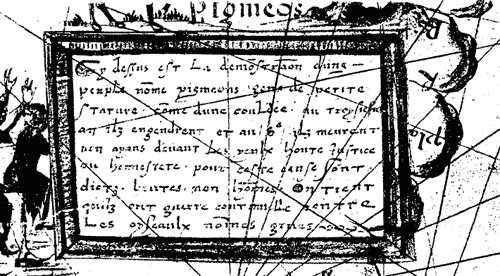 Pigmeos
Cy dessus est La demostraon dune
peuple nome pigmeons gens de petite
stature come dune couldee au troysieme
an ilz engendrent et au 8e ilz meurent
non ayans devant Les yeulx honte Justice
ou honnestete pour ceste cause sont
dictz brutes non homes On tient
quilz ont guerre contre
Les oyseaulx nomes grues